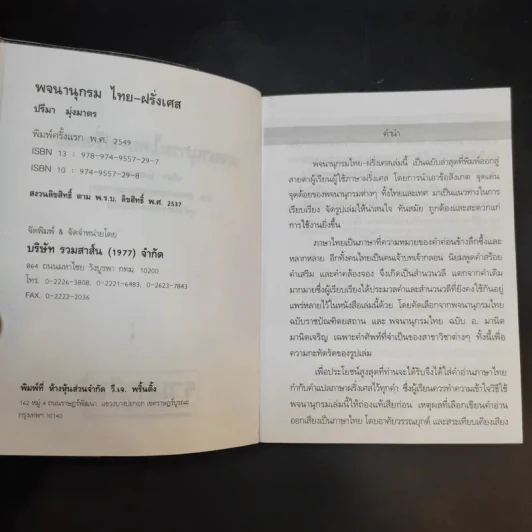 พจนานุกรม ไทย-ฝรั่งเศส
ปรีมา มุ่งมาตร
พิมพ์ครั้งแรก พ.ศ. 2549
ISBN 13 : 978-974-9557-29-7
ISBN 10 : 974-9557-29-8
สงวนลิขสิทธิ์ ตาม พ.ร.บ. ลิขสิทธิ์ พ.ศ. 2537
จัดพิมพ์ & จัดจำหน่ายโดย
บริษัท รวมสาส์น (1977) จำกัด
864 ถนนมหาไชย วังบูรพา กทม. 10200
โทร. 0-2226-3808, 0-2221-6483, 0-2623-7843
FAX. 0-2222-2036
พิมพ์ที่ ห้างหุ้นส่วนจำกัด วี.เจ. พริ้นติ้ง
162 หมู่ 4 ถนนราษฎร์พัฒนา แขวงบางปะกอก เขตราษฎร์บูรณะ
กรุงเทพฯ 10140
คำนำ
พจนานุกรมไทย-ฝรั่งเศสเล่มนี้ เป็นฉบับล่าสุดที่พิมพ์ออกสู่
สายตาผู้เรียนผู้ใช้ภาษาฝรั่งเศส โดยการนำเอาข้อสังเกต จุดเด่น
จุดด้อยของพจนานุกรมต่างๆ ทั้งไทยและเทศ มาเป็นแนวทางในการ
เรียบเรียง จัดรูปเล่มให้น่าสนใจ ทันสมัย ถูกต้องและสะดวกแก่
การใช้งานยิ่งขึ้น
ภาษาไทยเป็นภาษาที่ความหมายของคำค่อนข้างลึกซึ้งและ
หลากหลาย อีกทั้งคนไทยเป็นคนเจ้าบทเจ้ากลอน นิยมพูดคำสร้อย
คำเสริม และคำคล้องจอง จึงเกิดเป็นสำนวนวลี แตกจากคำเดิม
มากมายซึ่งผู้เรียบเรียงได้ประมวลคำและสำนวนวลีที่ยังคงใช้กันอยู่
แพร่หลายไว้ในหนังสือเล่มนี้ด้วย โดยคัดเลือกจากพจนานุกรมไทย
ฉบับราชบัณฑิตยสถาน และ พจนานุกรมไทย ฉบับ อ. มานิต
มานิตเจริญ เฉพาะคำศัพท์ที่จำเป็นของสาขาวิชาต่างๆ ทั้งนี้เพื่อ
ความกะทัดรัดของรูปเล่ม
เพื่อประโยชน์สูงสุดที่ท่านจะได้รับจึงได้ใส่คำอ่านภาษาไทย
กำกับคำแปลภาษาฝรั่งเศสไว้ทุกคำ ซึ่งผู้เรียนควรทำความเข้าใจวิธีใช้
พจนานุกรมเล่มนี้ให้ถ่องแท้เสียก่อน เหตุผลที่เลือกเขียนคำอ่าน
ออกเสียงเป็นภาษาไทย โดยอาศัยวรรณยุกต์ และสระเทียบเคียงเสียง